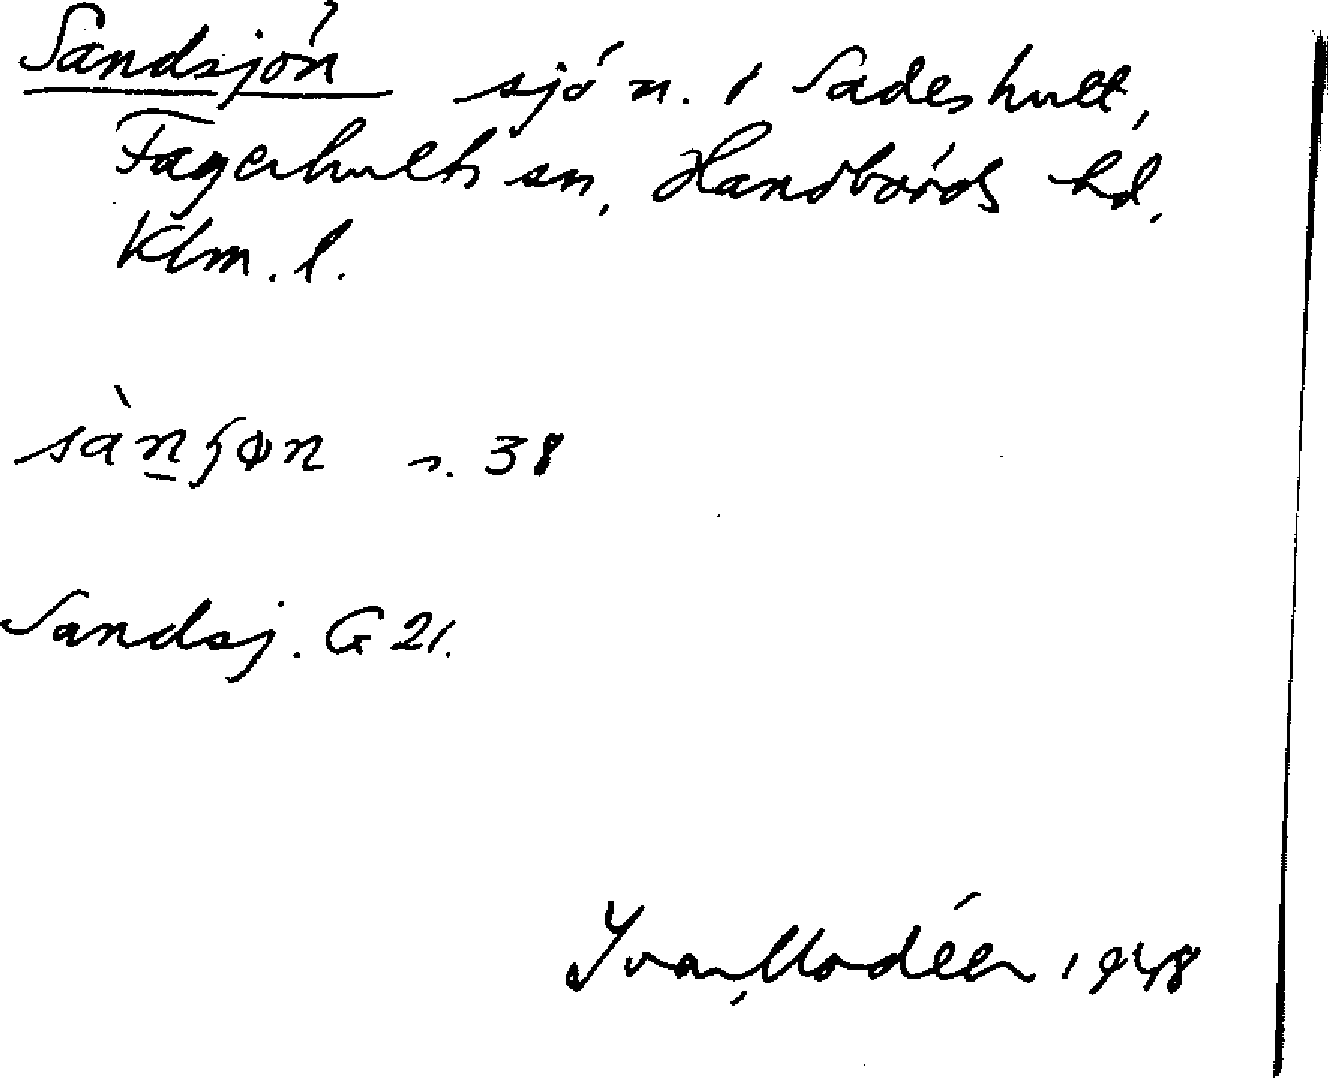 Sandsjön sjö n. i Sadeshult,
Fagerhults sn, Handbörds hd,
Klm. l.
sàn̲ʃøn s. 38
Sandsj. G 21.
Ivar Modéer 1948